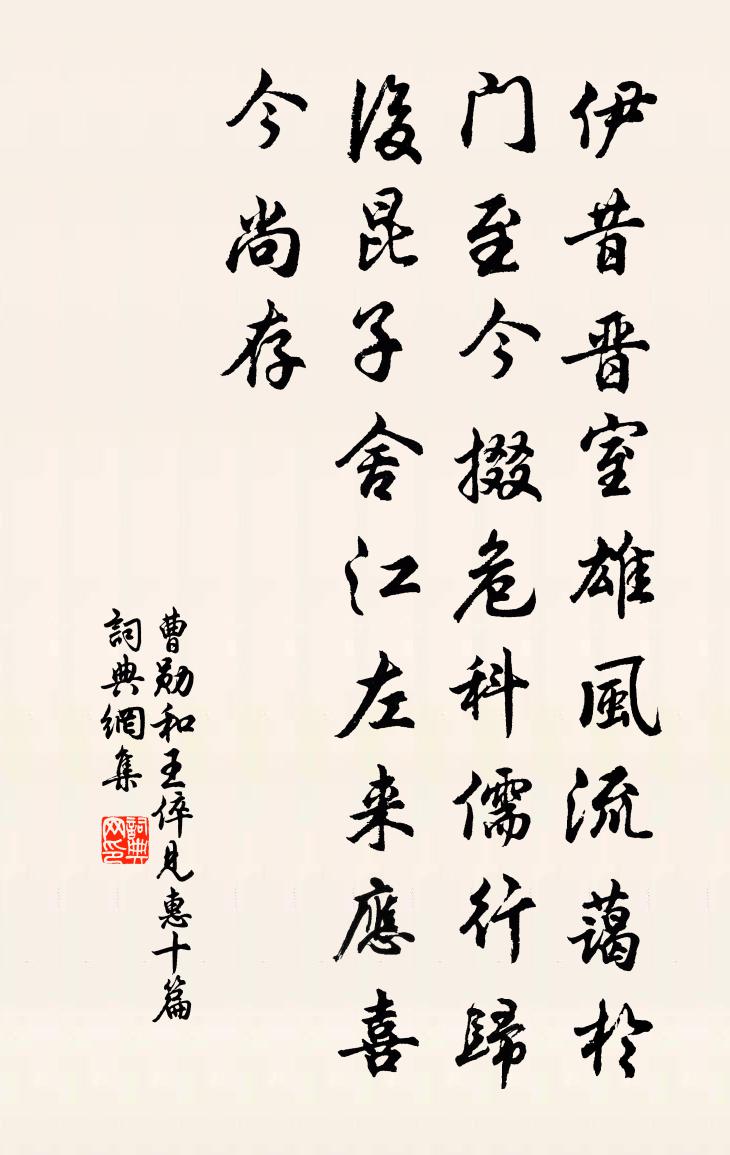 伊昔晋室雄風流藹於
门至今掇危科儒行歸
後昆子舍江左来應喜
今尚存
曹勛和王倅見惠十篇
詞典網集
詞典网印